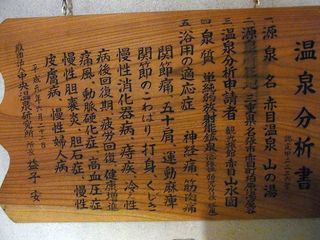 温泉分析書
一 源泉名 赤目温泉 山の湯
二 源泉
三 温泉分析申請者
四 泉質 単純弱放射能温泉
五 浴用の適応症
神経痛、筋肉痛
関節痛、五十肩、運動麻痺
関節のこわばり、打身、くじき
慢性消化器病、痔疾、冷性
病後回復期、疲労回復、健康増進
痛風、動脈硬化症、高血圧症
慢性胆嚢炎、胆石症、慢性
皮膚病、慢性婦人病
平成元年
財団法人 中央温泉研究所 益子 安